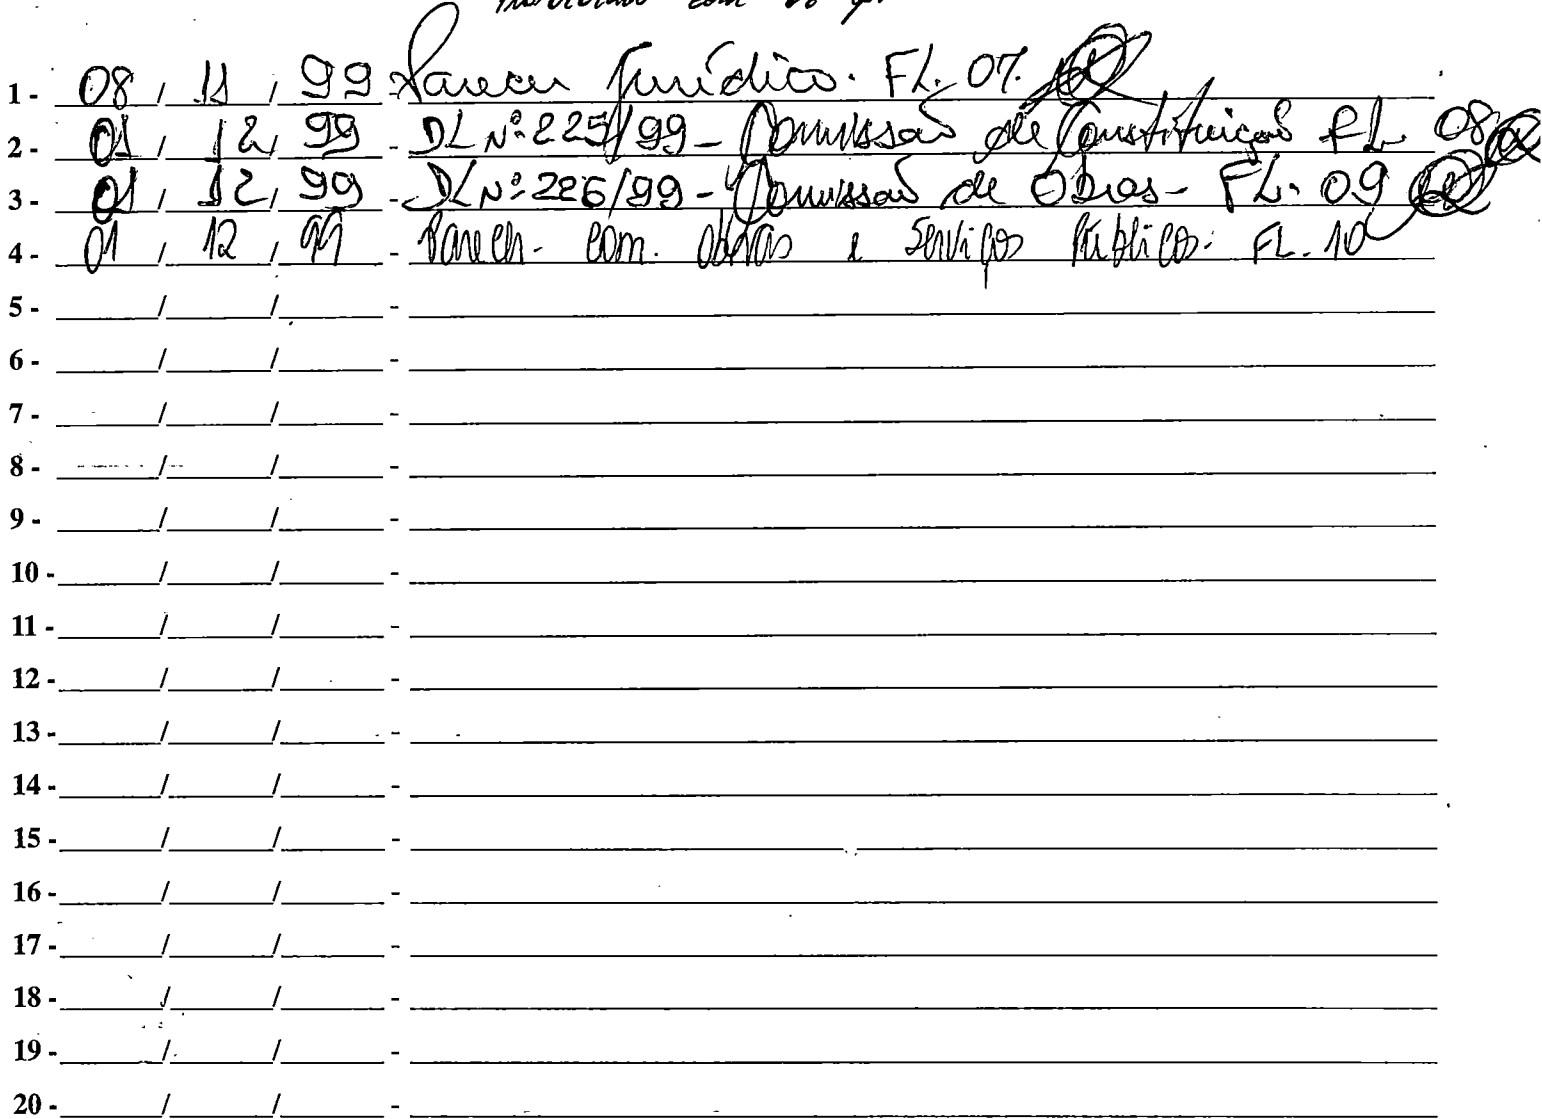 com
1 - 08 / 11 / 99 - Parecer Jurídico. FL. 07.
2 - 01 / 12 / 99 - DL Nº 225/99 - Comissão de Constituição FL. 08
3 - 01 / 12 / 99 - DL Nº 226/99 - Comissão de Obras - FL. 09
4 - 01 / 12 / 99 - Parecer. com. obras e Serviços Públicos. FL. 10
5 - / / -
6 - / / -
7 - / / -
8 - / / -
9 - / / -
10 - / / -
11 - / / -
12 - / / -
13 - / / -
14 - / / -
15 - / / -
16 - / / -
17 - / / -
18 - / / -
19 - / / -
20 - / / -